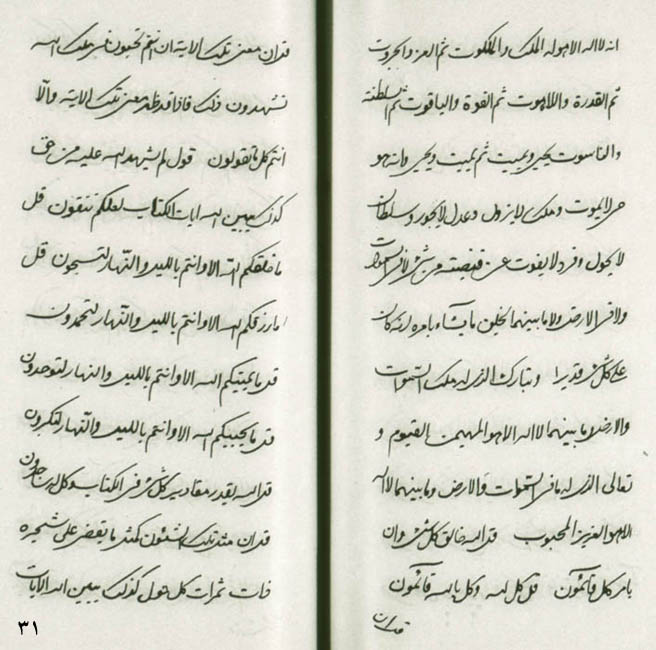 انه لا اله الا هو له الملك والملكوت ثم العز والجبروت
ثم القدرة واللاهوت ثم القوة والياقوت ثم السلطنة
والناسوت يحيي ويميت ثم يميت ويحيي وانه هو
حي لا يموت وملك لا يزول وعدل لا يجور وسلطان
لا يحول وفرد لا يفوت عن قبضته من شئ لا في السموات
ولا في الارض ولا ما بينهما يخلق ما يشاء بامره انه كان
على كل شئ قديرا وتبارك الذي له ملك السموات
والارض وما بينهما لا اله الا هو المهيمن القيوم و
تعالى الذي له ما في السموات والارض وما بينهما لا اله
الا هو العزيز المحبوب قل الله خالق كل شئ وان
بامر كل قائمون قل كل لله وكل بالله قائمون
قل ان
قل ان معنى تلك الاية ان انتم تحبون انفسكم لله
تشهدون ذلك فاذا قد ظهر معنى تلك الاية والا
انتم كل ما تقولون قول لم يشهد الله عليه من حق
كذلك يبين الله ايات الكتاب لعلكم تتقون قل
ما خلقكم الله الا وانتم بالليل والنهار لتسبحون قل
ما رزقكم الله الا وانتم بالليل والنهار لتحمدون
قل ما يميتكم الله الا وانتم بالليل والنهار لتوحدون
قل ما يحييكم الله الا وانتم بالليل والنهار لتكبرون
قل الله يقدر مقادير كل شئ في الكتاب وكل له ساجدون
قل ان مثل تلك الشئون كمثل ما يقضي على شجرة
ذات ثمرات كل حول كذلك يبين الله الايات
٣١